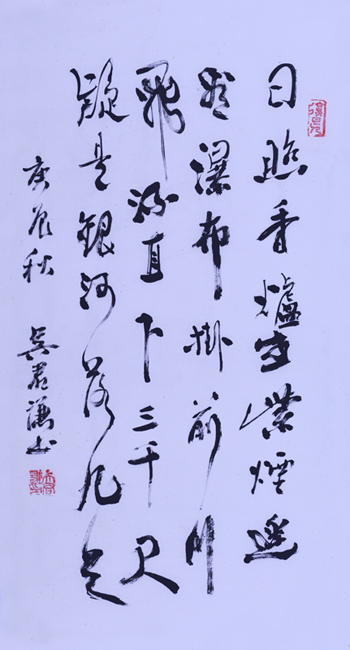 日照香爐生紫煙遙
看瀑布掛前川
飛流直下三千尺
疑是銀河落九天
庚辰秋 吳君謙书